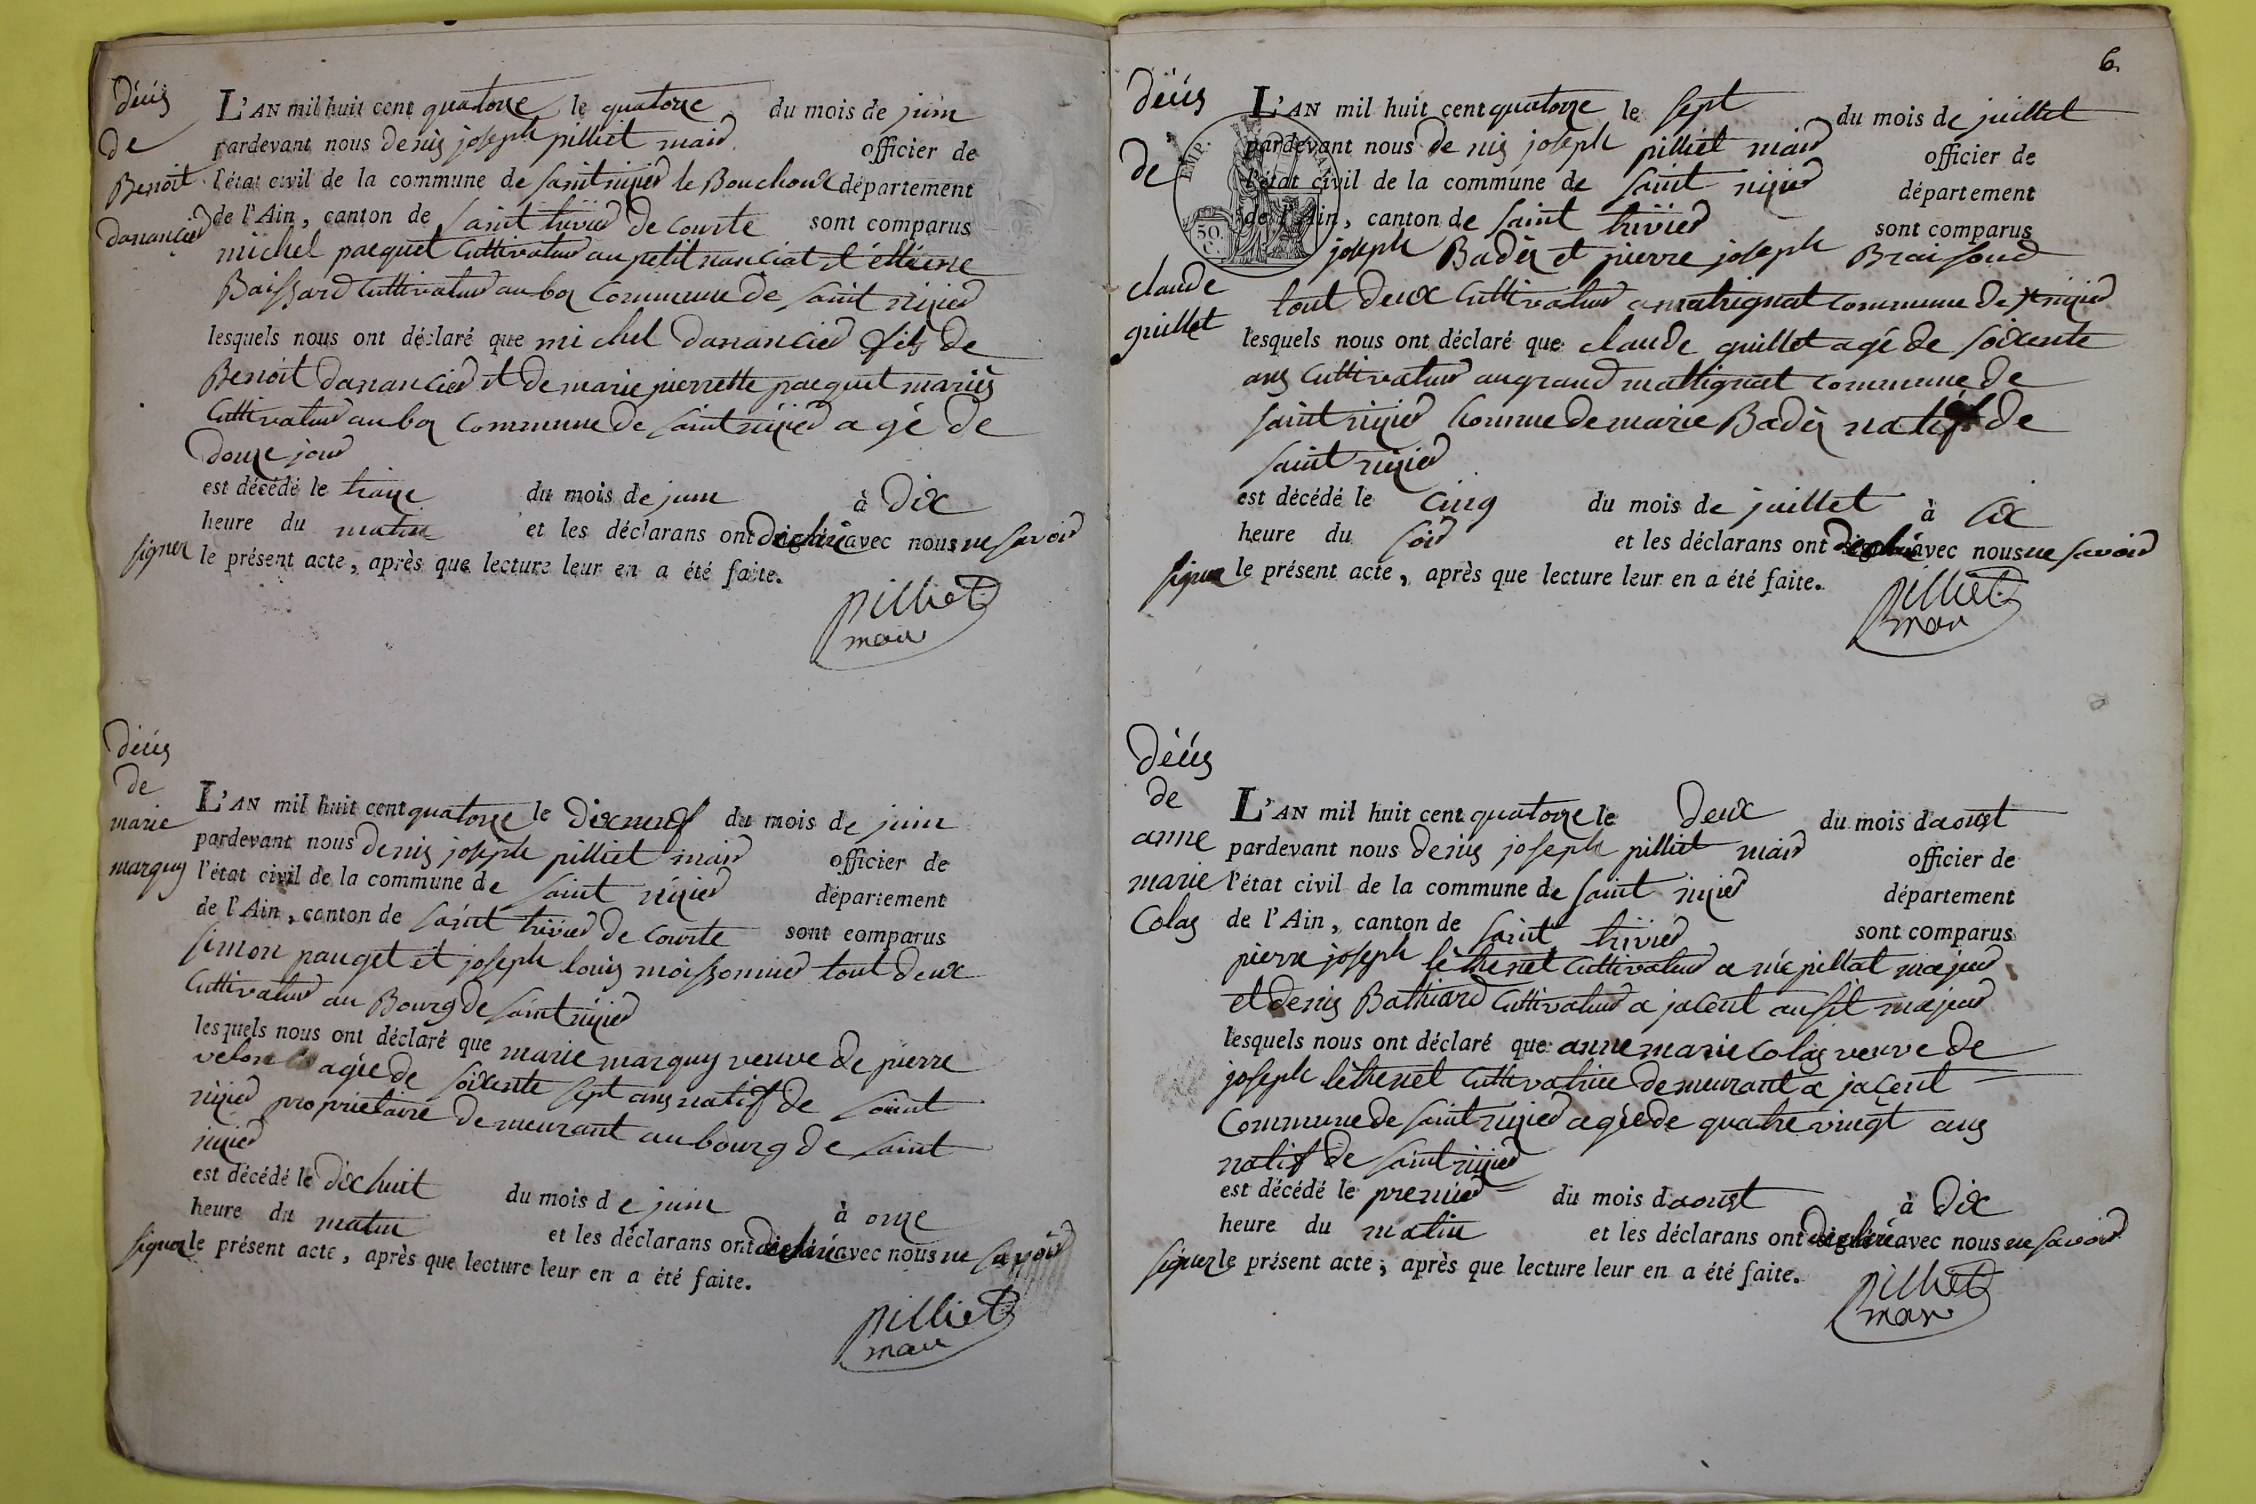 décés
de
Benoit
danancier
L'AN mil huit cent quatorze le quatorze du mois de juin
pardevant nous denis joseph pilliet maire officier de
l'état civil de la commune de saint nizier le Bouchoux département
de l'Ain, canton de saint trivier de courte sont comparus
michel pacquet Cultivateur au petit nanciat et étienne
Baissard Cultivateur au Commune de saint nizier
lesquels nous ont déclaré que michel danancier fils de
Benoit danancier et de marie pierrette pacquet mariés
Cultivateur au commune de saint nizier agé de
douze jour
est décédé le treize du mois de juin à dix
heure du matin et les déclarans ont déclaré avec nous ne savoir
signer le présent acte, après que lecture leur en a été faite.
pilliet
maire
décés
de
marie
marguy
L'AN mil huit cent quatorze le dix neuf du mois de juin
pardevant nous denis joseph pilliet maire officier de
l'état civil de la commune de saint nizier département
de l'Ain, canton de saint trivier de courte sont comparus
simon pauget et joseph louis moissonnier tout deux
Cultivateur au Bourg de saint nizier
lesquels nous ont déclaré que marie marguy veuve de pierre
velon agée de soixente sept ans natif de saint
nizier proprietaire demeurant au bourg de saint
nizier
est décédé le dix huit du mois de juin à onze
heure du matin et les déclarans ont déclaré avec nous ne savoir
signer le présent acte, après que lecture leur en a été faite.
pilliet
maire
6.
décés
de
claude
guillet
EMP.
50.
C.
L'AN mil huit cent quatorze le sept du mois de juillet
pardevant nous denis joseph pilliet maire officier de
l'état civil de la commune de saint nizier département
de l'Ain, canton de saint trivier sont comparus
joseph Badez et pierre joseph
tout deux Cultivateur a commune de st nizier
lesquels nous ont déclaré que claude guillet agé de soixente
ans Cultivateur au grand mattignat commune de
saint nizier homme de marie Badez natif de
saint nizier
est décédé le cinq du mois de juillet à six
heure du soir et les déclarans ont déclaré avec nous ne savoir
signer le présent acte, après que lecture leur en a été faite.
pilliet
maire
décés
de
anne
marie
Colas
L'AN mil huit cent quatorze le deux du mois d'aoust
pardevant nous denis joseph pilliet maire officier de
l'état civil de la commune de saint nizier département
de l'Ain, canton de saint trivier sont comparus
pierre joseph léthenet Cultivateur a majeur
et denis Bathiard Cultivateur a jacent aussit majeur
lesquels nous ont déclaré que anne marie colas veuve de
joseph léthenet Cultivatrice demeurant a jacent
Commune de saint nizier agée de quatre vingt ans
natif de saint nizier
est décédé le premier du mois d'aoust à dix
heure du matin et les déclarans ont déclaré avec nous ne savoir
signer le présent acte, après que lecture leur en a été faite.
pilliet
maire